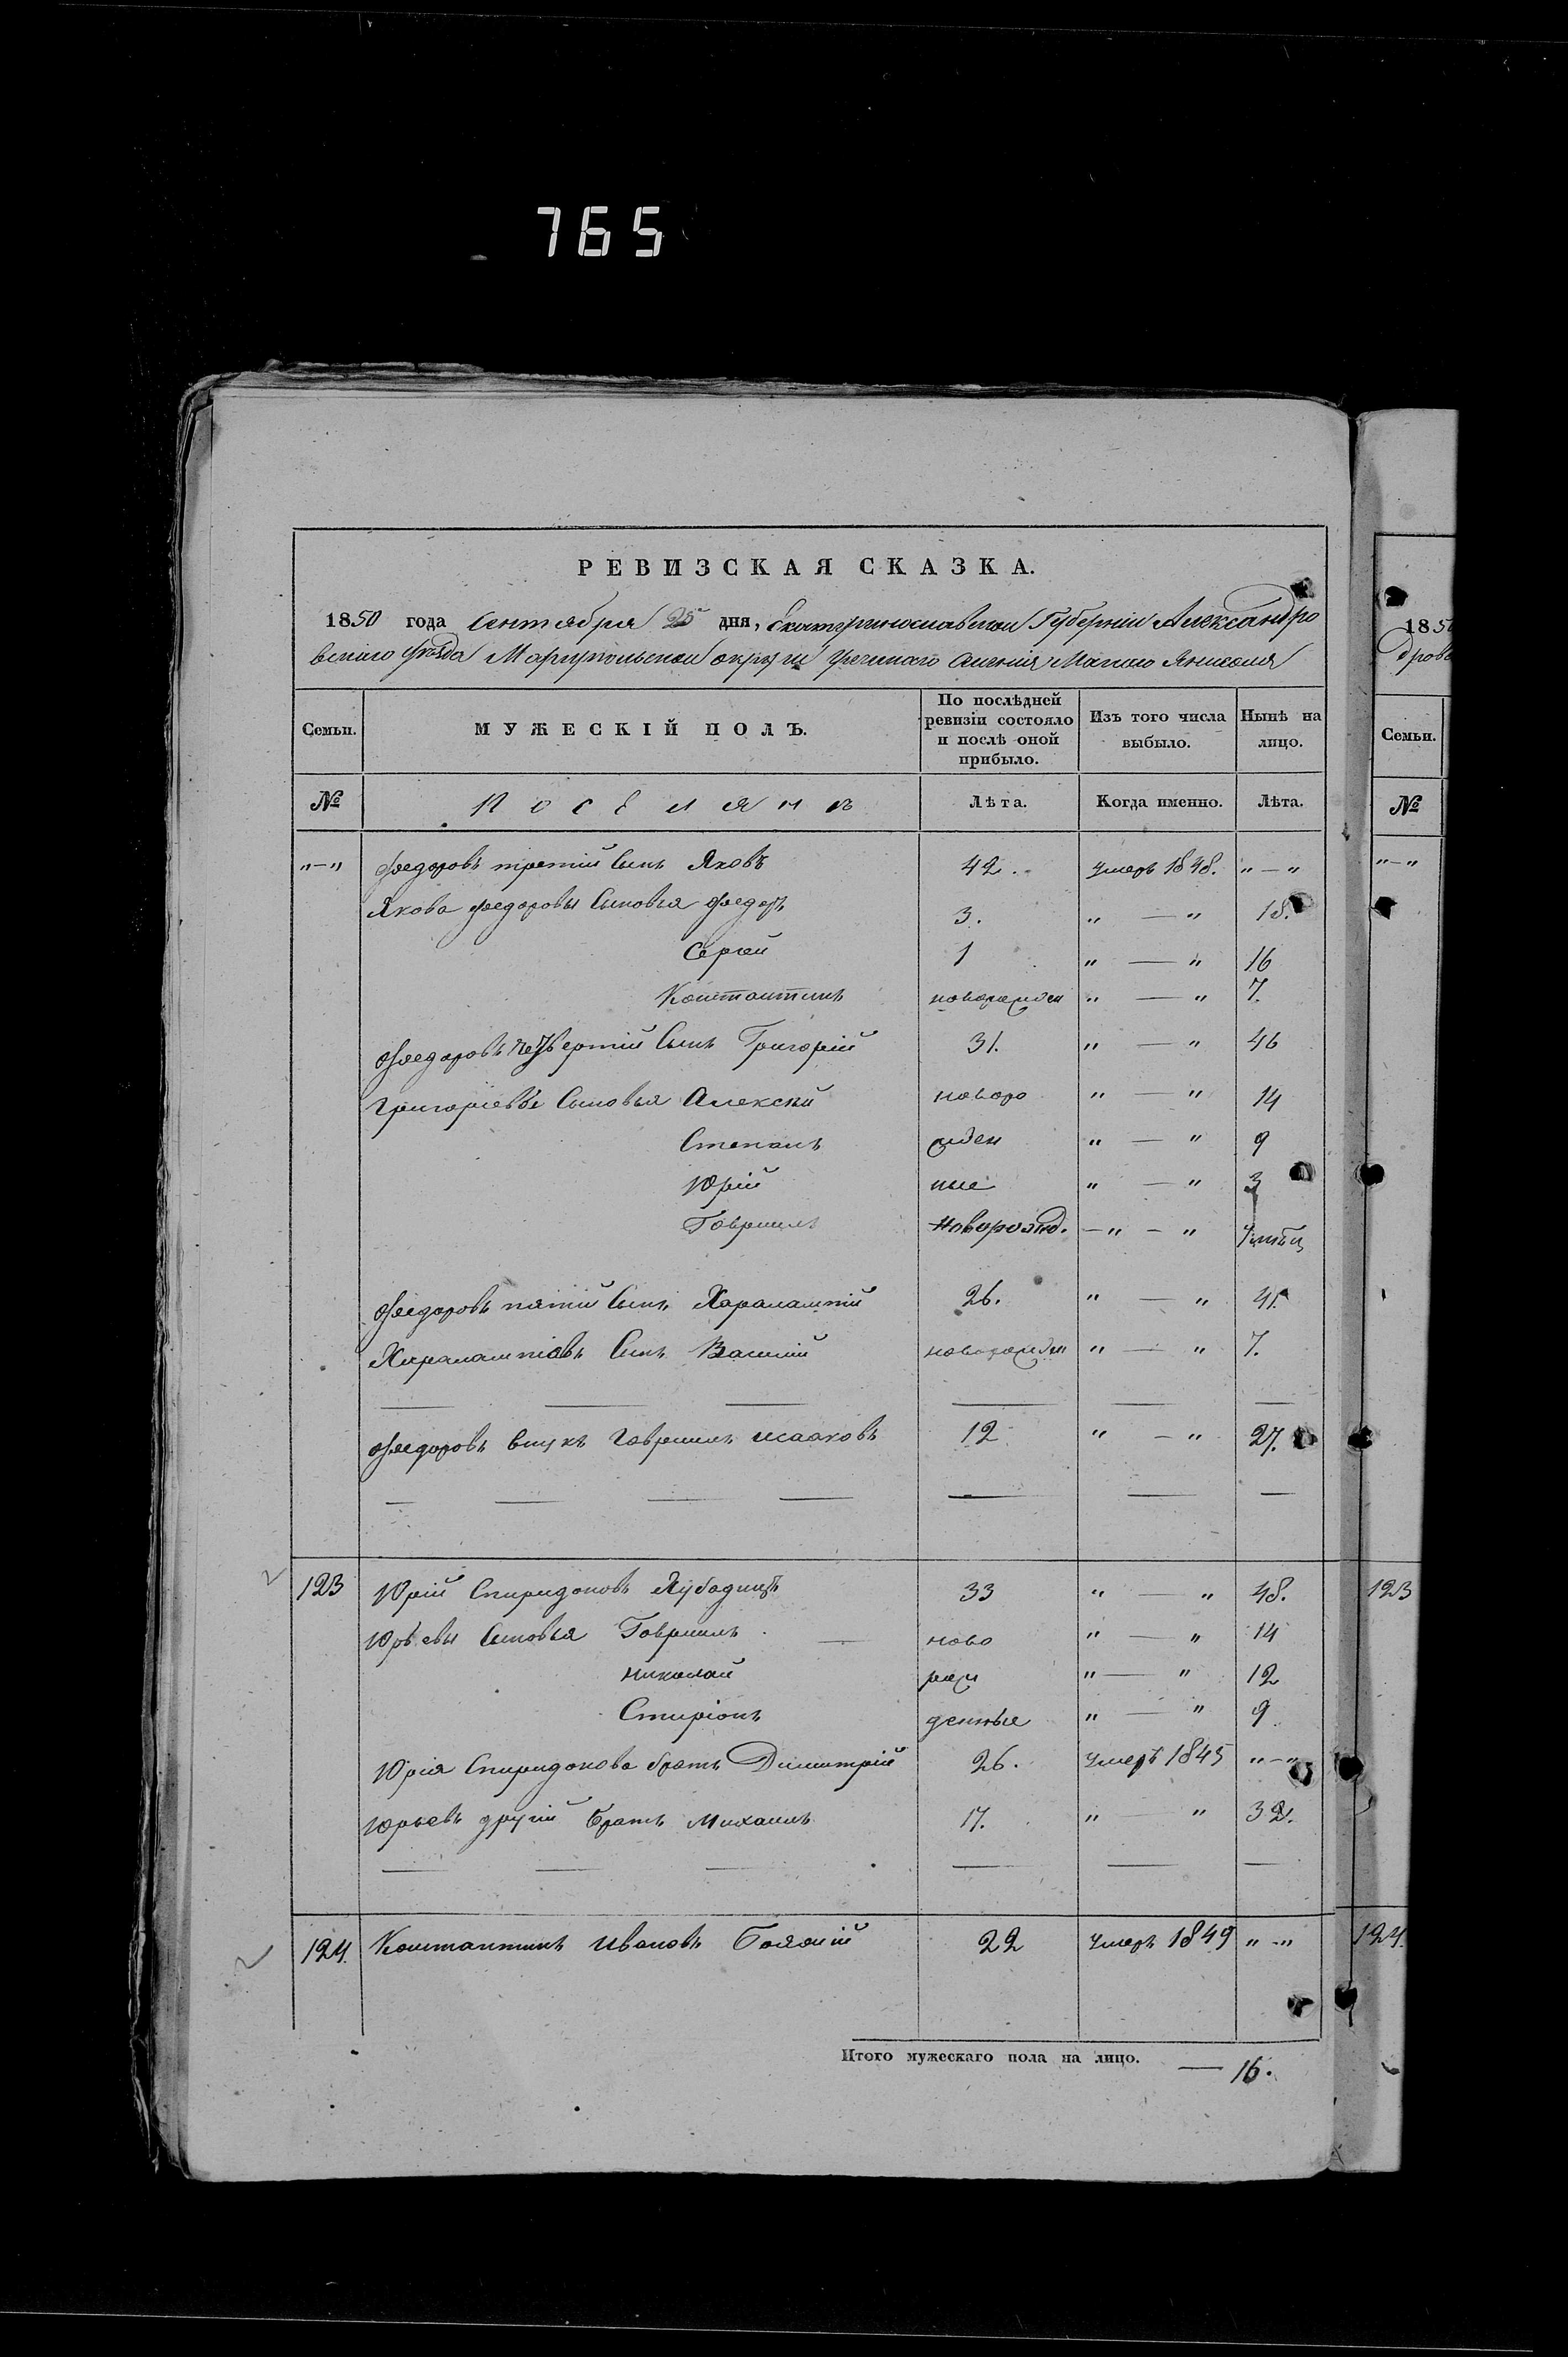 765
РЕВИЗСКАЯ СКАЗКА.
1850 года Сентября 25 дня, Екатеринославской Губерніи Александро
вскаго Уѣзда Маріупольской округи Греческаго селенія Малаго Янисоля
Семьи. МУЖЕСКІЙ ПОЛЪ. По послѣдней ревизіи состояло и послѣ оной прибыло. Изъ того числа выбыло. Нынѣ на лицо.
№ Поселянъ Лѣта. Когда именно. Лѣта.
"—" Федоровъ третій Сынъ Яковъ 42. Умеръ 1848. "—"
Якова Федоровы Сыновья Федоръ 3. "—" 18.
Сергей 1 "—" 16
Константинъ новорожден "—" 7.
Федоровъ четвертій Сынъ Григорій 31. "—" 46
Григоріевы Сыновья Алексѣй новоро "—" 14
Степанъ жден "—" 9
Юрій ные "—" 3
Гавриилъ Новорожд. —"—"
Федоровъ пятій Сынъ Харалампій 26. "—" 41.
Харалампіевъ Сынъ Василій новорожден "—" 7.
Федоровъ внукъ Гавриилъ Исааковъ 12 "—" 27.
123 Юрій Спиридоновъ 33 "—" 48.
Юрьевы Сыновья Гавриилъ ново "—" 14
Николай рож "—" 12
Спиріонъ денные "—" 9
Юрія Спиридонова братъ Димитрій 26. Умеръ 1845 "—"
Юрьевъ другій братъ Михаилъ 17. "—" 32.
124. Константинъ Ивановъ 22 Умеръ 1849 "—"
Итого мужескаго пола на лицо. — 16.
185
дров
Семьи.
№
"—"
123
124.